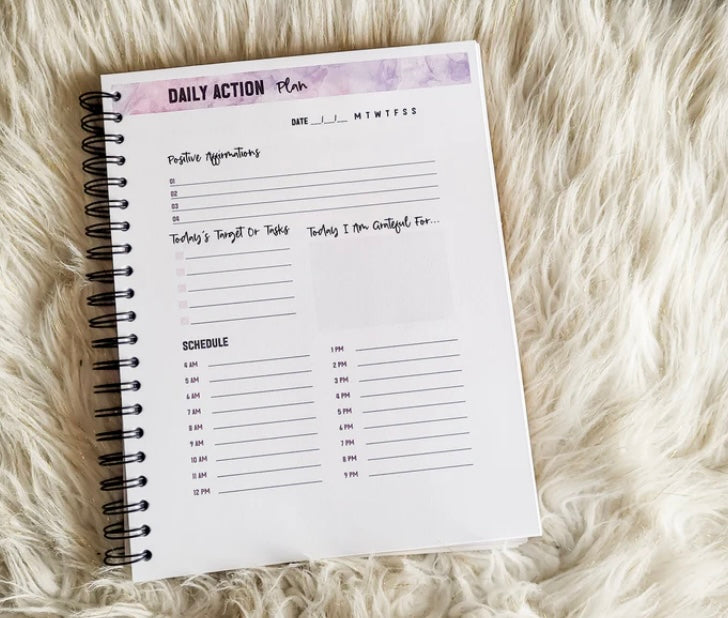 DAILY ACTION Plan
DATE __/__/__ M T W T F S S
Positive Affirmations
01
02
03
04
Today's Target Or Tasks
Today I Am Grateful For...
SCHEDULE
4 AM
5 AM
6 AM
7 AM
8 AM
9 AM
10 AM
11 AM
12 PM
1 PM
2 PM
3 PM
4 PM
5 PM
6 PM
7 PM
8 PM
9 PM